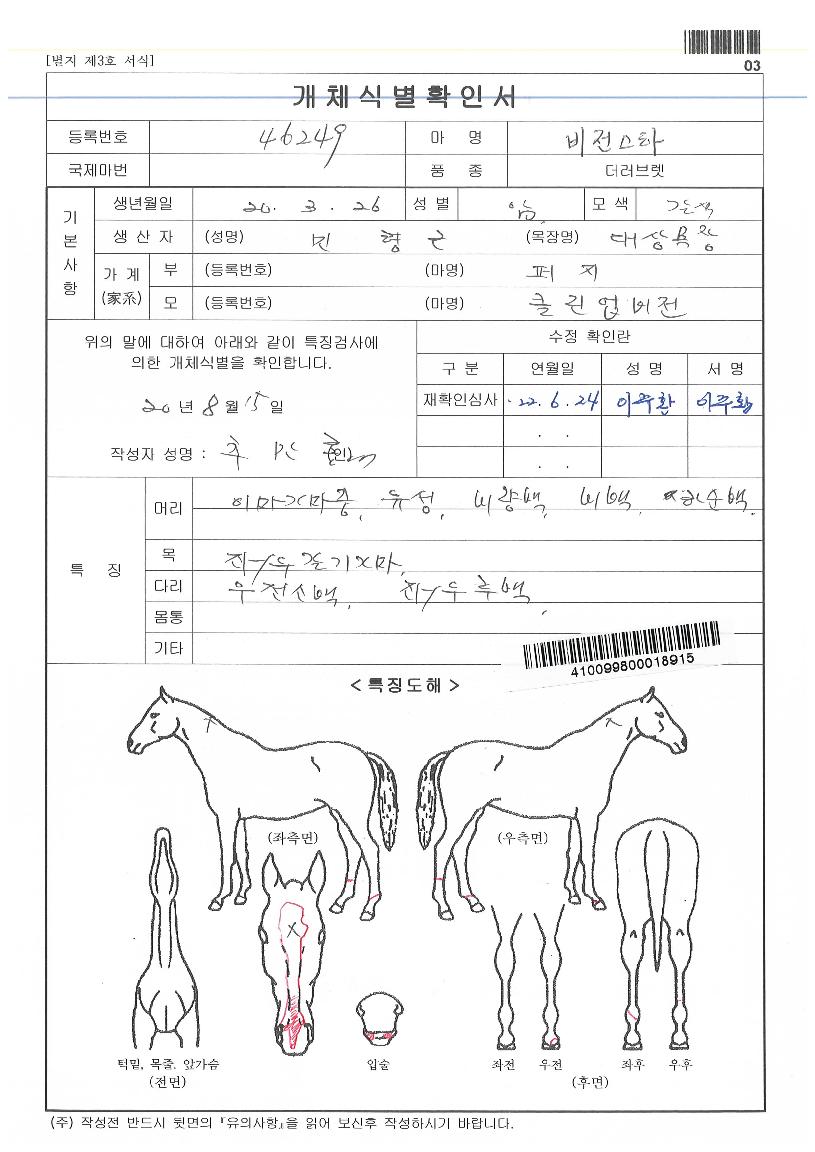 [별지 제3호 서식]
03
개체식별확인서
등록번호 46249 마 명 비전스타
국제마번 품 종 더러브렛
기본사항
생년월일 20. 3. 26 성 별 암 모 색 갈색
생 산 자 (성명) 민 형 근 (목장명) 대상목장
가 계 (家系) 부 (등록번호) (마명) 퍼 지
모 (등록번호) (마명) 클린업비전
위의 말에 대하여 아래와 같이 특징검사에
의한 개체식별을 확인합니다.
20년 8월 15일
작성자 성명 : (인)
수정 확인란
구 분 연월일 성 명 서 명
재확인심사 22. 6. 24 이주환 이주환
. .
. .
특 징
머리 이마가마중, 유성, 비량백, 비백,
목 좌/우
다리 우전 좌/우후백,
몸통
기타
410099800018915
<특징도해>
(좌측면) (우측면)
턱밑, 목줄, 앞가슴 (전면)
입술
좌전 우전 좌후 우후
(후면)
(주) 작성전 반드시 뒷면의 『유의사항』을 읽어 보신후 작성하시기 바랍니다.